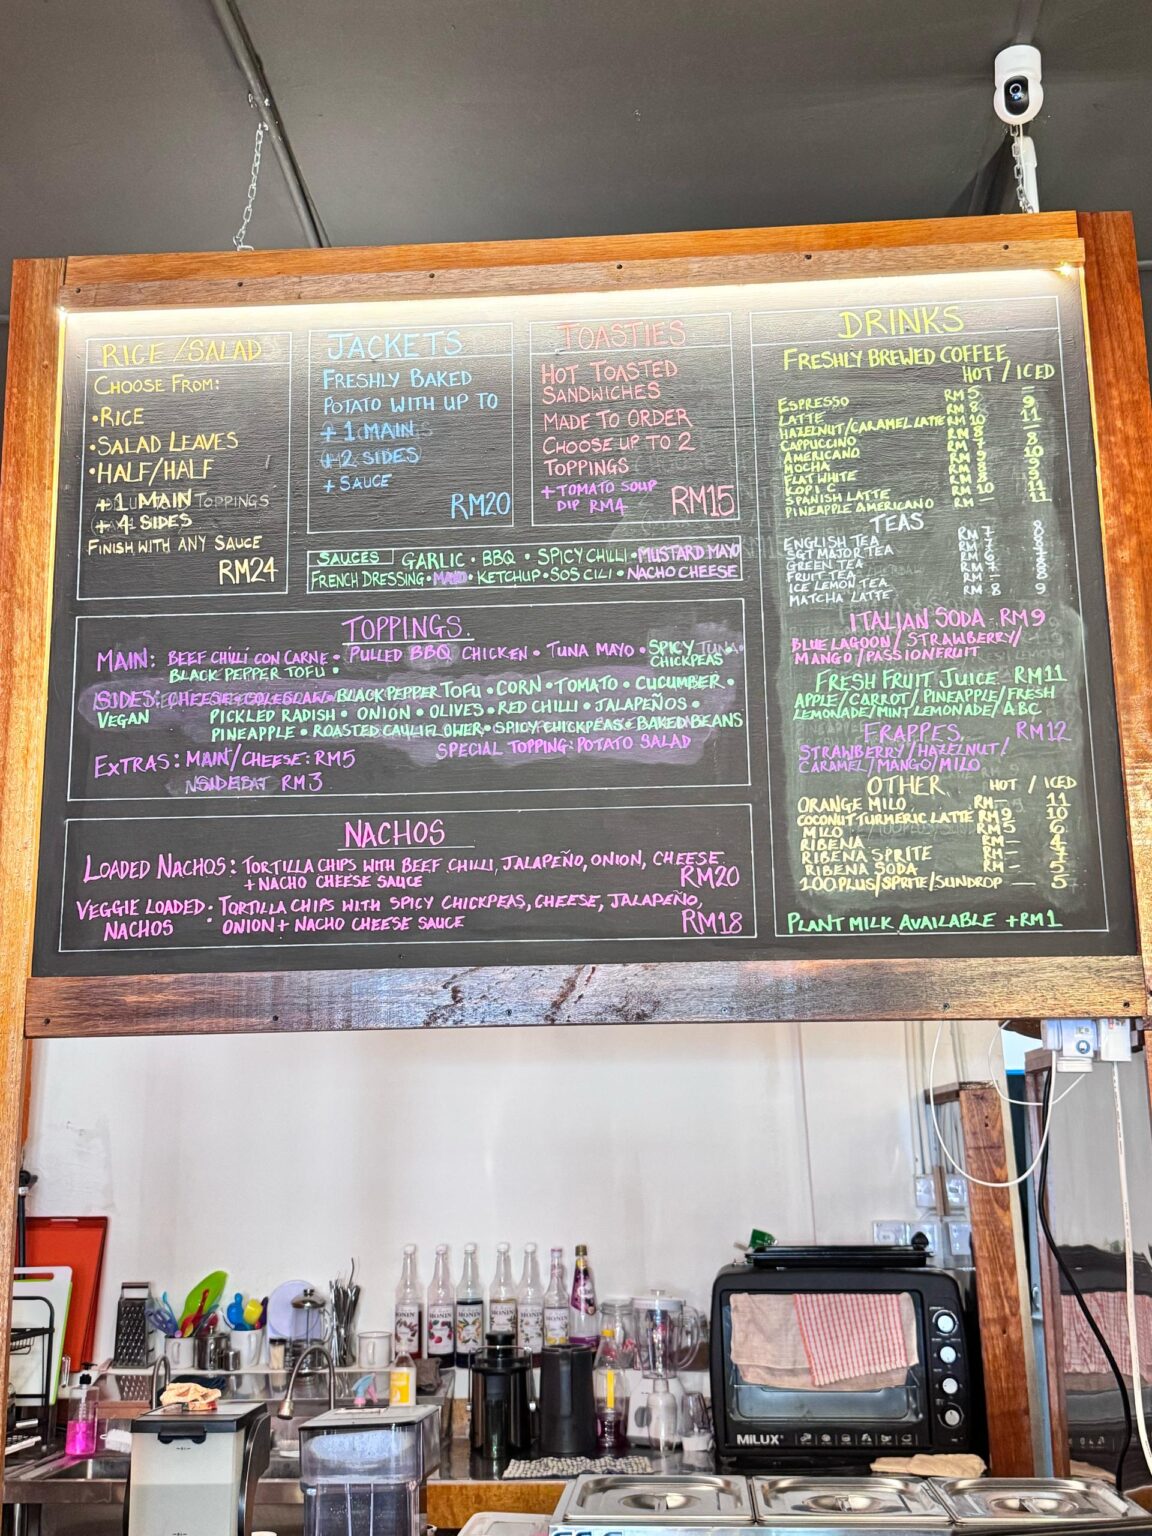 RICE / SALAD
CHOOSE FROM:
•RICE
•SALAD LEAVES
•HALF/HALF
+ 1 MAIN
+ 4 SIDES
FINISH WITH ANY SAUCE
RM24
JACKETS
FRESHLY BAKED
POTATO WITH UP TO
+ 1 MAIN
+ 2 SIDES
+ SAUCE
RM20
TOASTIES
HOT TOASTED
SANDWICHES
MADE TO ORDER
CHOOSE UP TO 2
TOPPINGS
+ TOMATO SOUP
DIP RM4
RM15
SAUCES GARLIC • BBQ • SPICY CHILLI • MUSTARD MAYO
FRENCH DRESSING • MAYO • KETCHUP • SOS CILI • NACHO CHEESE
TOPPINGS
MAIN: BEEF CHILLI CON CARNE • PULLED BBQ CHICKEN • TUNA MAYO • SPICY
CHICKPEAS
BLACK PEPPER TOFU •
SIDES: CHEESE • COLESLAW • BLACK PEPPER TOFU • CORN • TOMATO • CUCUMBER •
VEGAN PICKLED RADISH • ONION • OLIVES • RED CHILLI • JALAPEÑOS •
PINEAPPLE • ROASTED CAULIFLOWER • SPICY CHICKPEAS • BAKED BEANS
SPECIAL TOPPING: POTATO SALAD
EXTRAS: MAIN/CHEESE: RM5
SIDES RM3
NACHOS
LOADED NACHOS: TORTILLA CHIPS WITH BEEF CHILLI, JALAPEÑO, ONION, CHEESE
+ NACHO CHEESE SAUCE RM20
VEGGIE LOADED NACHOS: TORTILLA CHIPS WITH SPICY CHICKPEAS, CHEESE, JALAPEÑO,
ONION + NACHO CHEESE SAUCE RM18
DRINKS
FRESHLY BREWED COFFEE
HOT / ICED
ESPRESSO RM 5 –
LATTE RM 8 9
HAZELNUT/CARAMEL LATTE RM 10 11
CAPPUCCINO RM 8 –
AMERICANO RM 7 8
MOCHA RM 9 10
FLAT WHITE RM 8 9
KOPI C RM 8 9
SPANISH LATTE RM 10 11
PINEAPPLE AMERICANO RM – 11
TEAS
ENGLISH TEA RM 7 8
SGT MAJOR TEA RM 7
GREEN TEA RM 6
FRUIT TEA RM 7
ICE LEMON TEA RM – 8
MATCHA LATTE RM 8 9
ITALIAN SODA RM9
BLUE LAGOON / STRAWBERRY/
MANGO / PASSIONFRUIT
FRESH FRUIT JUICE RM11
APPLE / CARROT / PINEAPPLE / FRESH
LEMONADE/MINT LEMONADE/ABC
FRAPPES RM12
STRAWBERRY / HAZELNUT/
CARAMEL / MANGO / MILO
OTHER HOT / ICED
ORANGE MILO RM – 11
COCONUT TURMERIC LATTE RM 9 10
MILO RM 5 6
RIBENA RM – 4
RIBENA SPRITE RM – 7
RIBENA SODA RM – 5
100 PLUS/SPRITE/SUNDROP — 5
PLANT MILK AVAILABLE + RM1
MONIN
MONIN
MONIN
MONIN
MONIN
MILUX